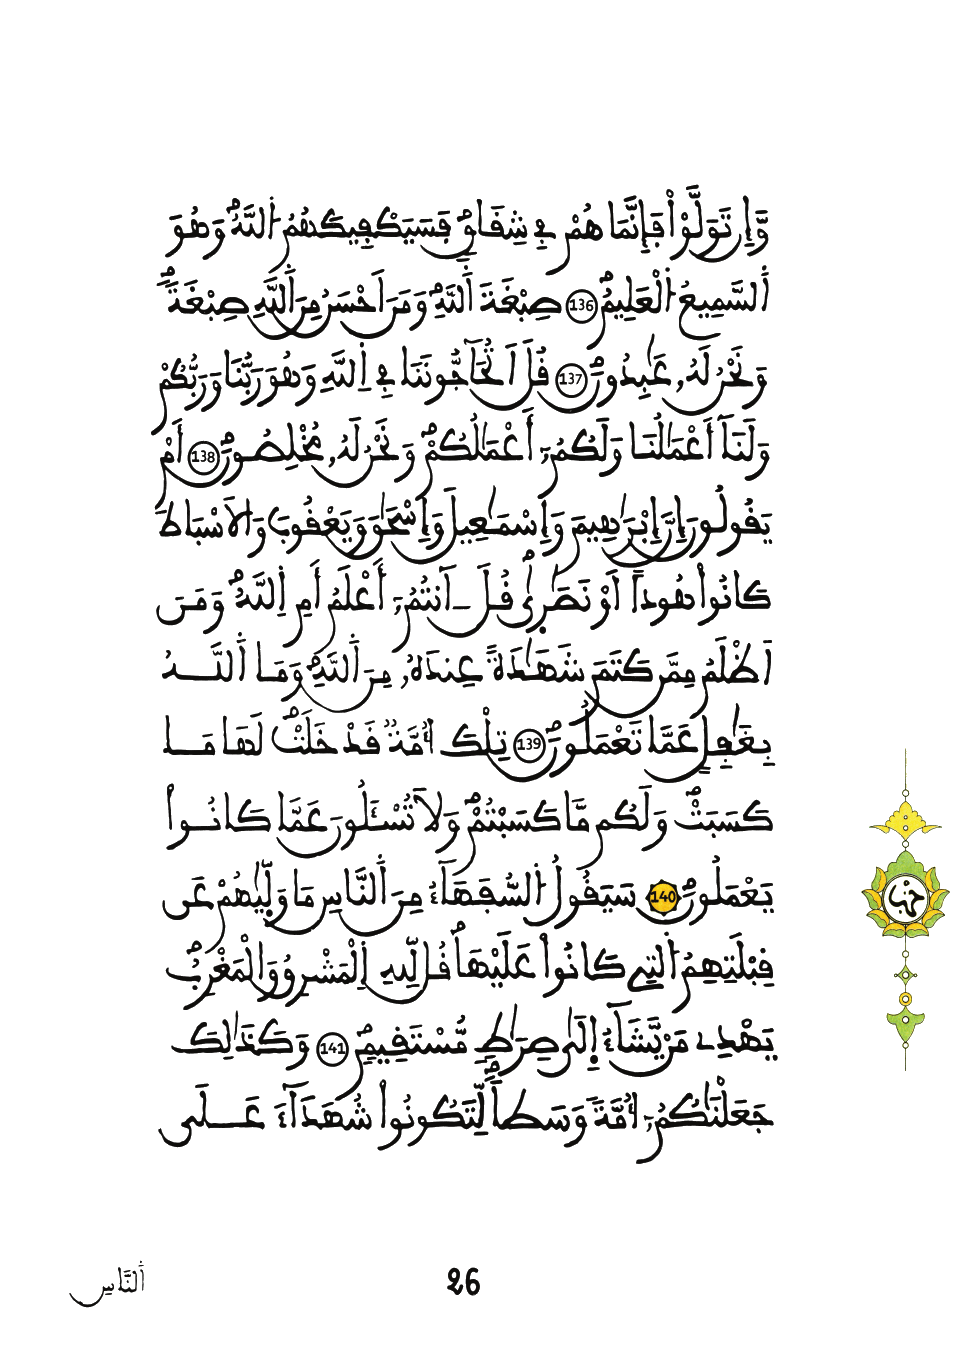 وَّإِن تَوَلَّوْاْ فَإِنَّمَا هُمْ فِے شِقَاقٍۖ فَسَيَكْفِيكَهُمُ اُللَّهُۖ وَهُوَ
اَ۬لسَّمِيعُ اُ۬لْعَلِيمُۖ 136 صِبْغَةَ اَ۬للَّهِۖ وَمَنَ اَحْسَنُ مِنَ اَ۬للَّهِ صِبْغَةٗۖ
وَنَحْنُ لَهُۥ عَٰبِدُونَۖ 137 قُلَ اَتُحَآجُّونَنَا فِے اِ۬للَّهِ وَهُوَ رَبُّنَا وَرَبُّكُمْ
وَلَنَآ أَعْمَٰلُنَا وَلَكُمُۥٓ أَعْمَٰلُكُمْۖ وَنَحْنُ لَهُۥ مُخْلِصُونَۖ 138 أَمْ
يَقُولُونَ إِنَّ إِبْرَٰهِيمَ وَإِسْمَٰعِيلَ وَإِسْحَٰقَ وَيَعْقُوبَ وَالَاسْبَاطَ
كَانُواْ هُوداً اَوْ نَصَٰرٜيۖ قُلَ ـ آنتُمُۥٓ أَعْلَمُ أَمِ اِ۬للَّهُۖ وَمَنَ
اَظْلَمُ مِمَّن كَتَمَ شَهَٰدَةً عِندَهُۥ مِنَ اَ۬للَّهِۖ وَمَا اَ۬للَّهُ
بِغَٰفِلٍ عَمَّا تَعْمَلُونَۖ 139 تِلْكَ أُمَّةٞ قَدْ خَلَتْۖ لَهَا مَا
كَسَبَتْۖ وَلَكُم مَّا كَسَبْتُمْۖ وَلَا تُسْـَٔلُونَ عَمَّا كَانُواْ
يَعْمَلُونَۖ 140 سَيَقُولُ اُ۬لسُّفَهَآءُ مِنَ اَ۬لنَّاسِ مَا وَلّٜيٰهُمْ عَن
قِبْلَتِهِمُ اُ۬لتِے كَانُواْ عَلَيْهَاۖ قُل لِّلهِ اِ۬لْمَشْرِقُ وَالْمَغْرِبُۖ
يَهْدِے مَنْ يَّشَآءُ اِ۪لَيٰ صِرَٰطٖ مُّسْتَقِيمٖۖ 141 وَكَذَٰلِكَ
جَعَلْنَٰكُمُۥٓ أُمَّةٗ وَسَطاٗ لِّتَكُونُواْ شُهَدَآءَ عَلَي
حزب
اَ۬لنَّاسِ
26